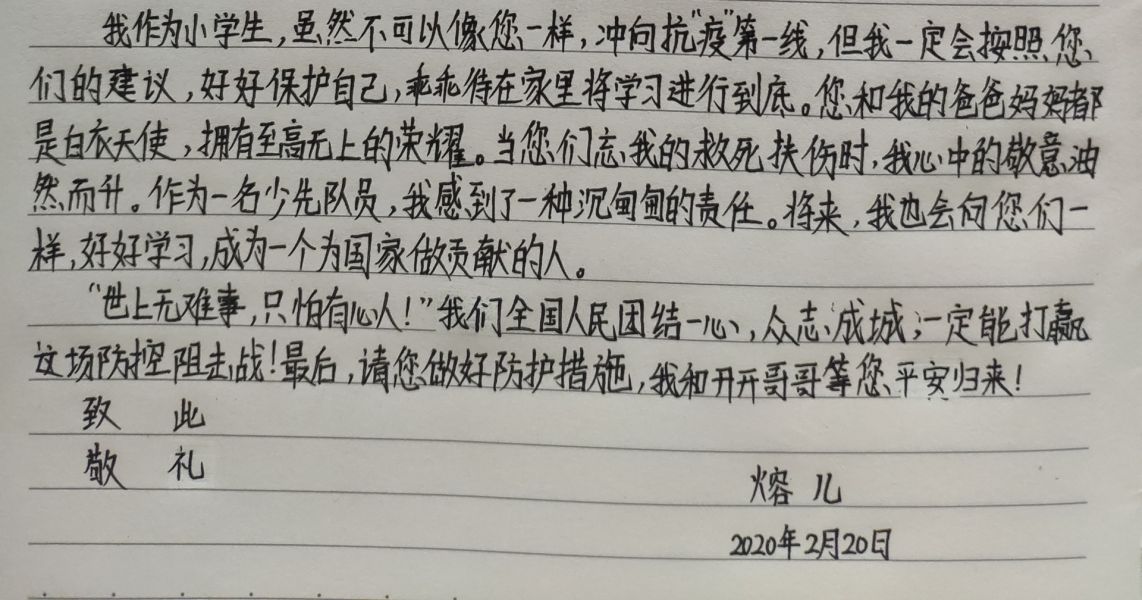 我作为小学生，虽然不可以像您一样，冲向抗"疫"第一线，但我一定会按照您
们的建议，好好保护自己，乖乖待在家里将学习进行到底。您和我的爸爸妈妈都
是白衣天使，拥有至高无上的荣耀。当您们忘我的救死扶伤时，我心中的敬意油
然而升。作为一名少先队员，我感到了一种沉甸甸的责任。将来，我也会向您们一
样，好好学习，成为一个为国家做贡献的人。
"世上无难事，只怕有心人！"我们全国人民团结一心，众志成城，一定能打赢
这场防控阻击战！最后，请您做好防护措施，我和开开哥哥等您平安归来！
致 此
敬 礼
熔儿
2020年2月20日